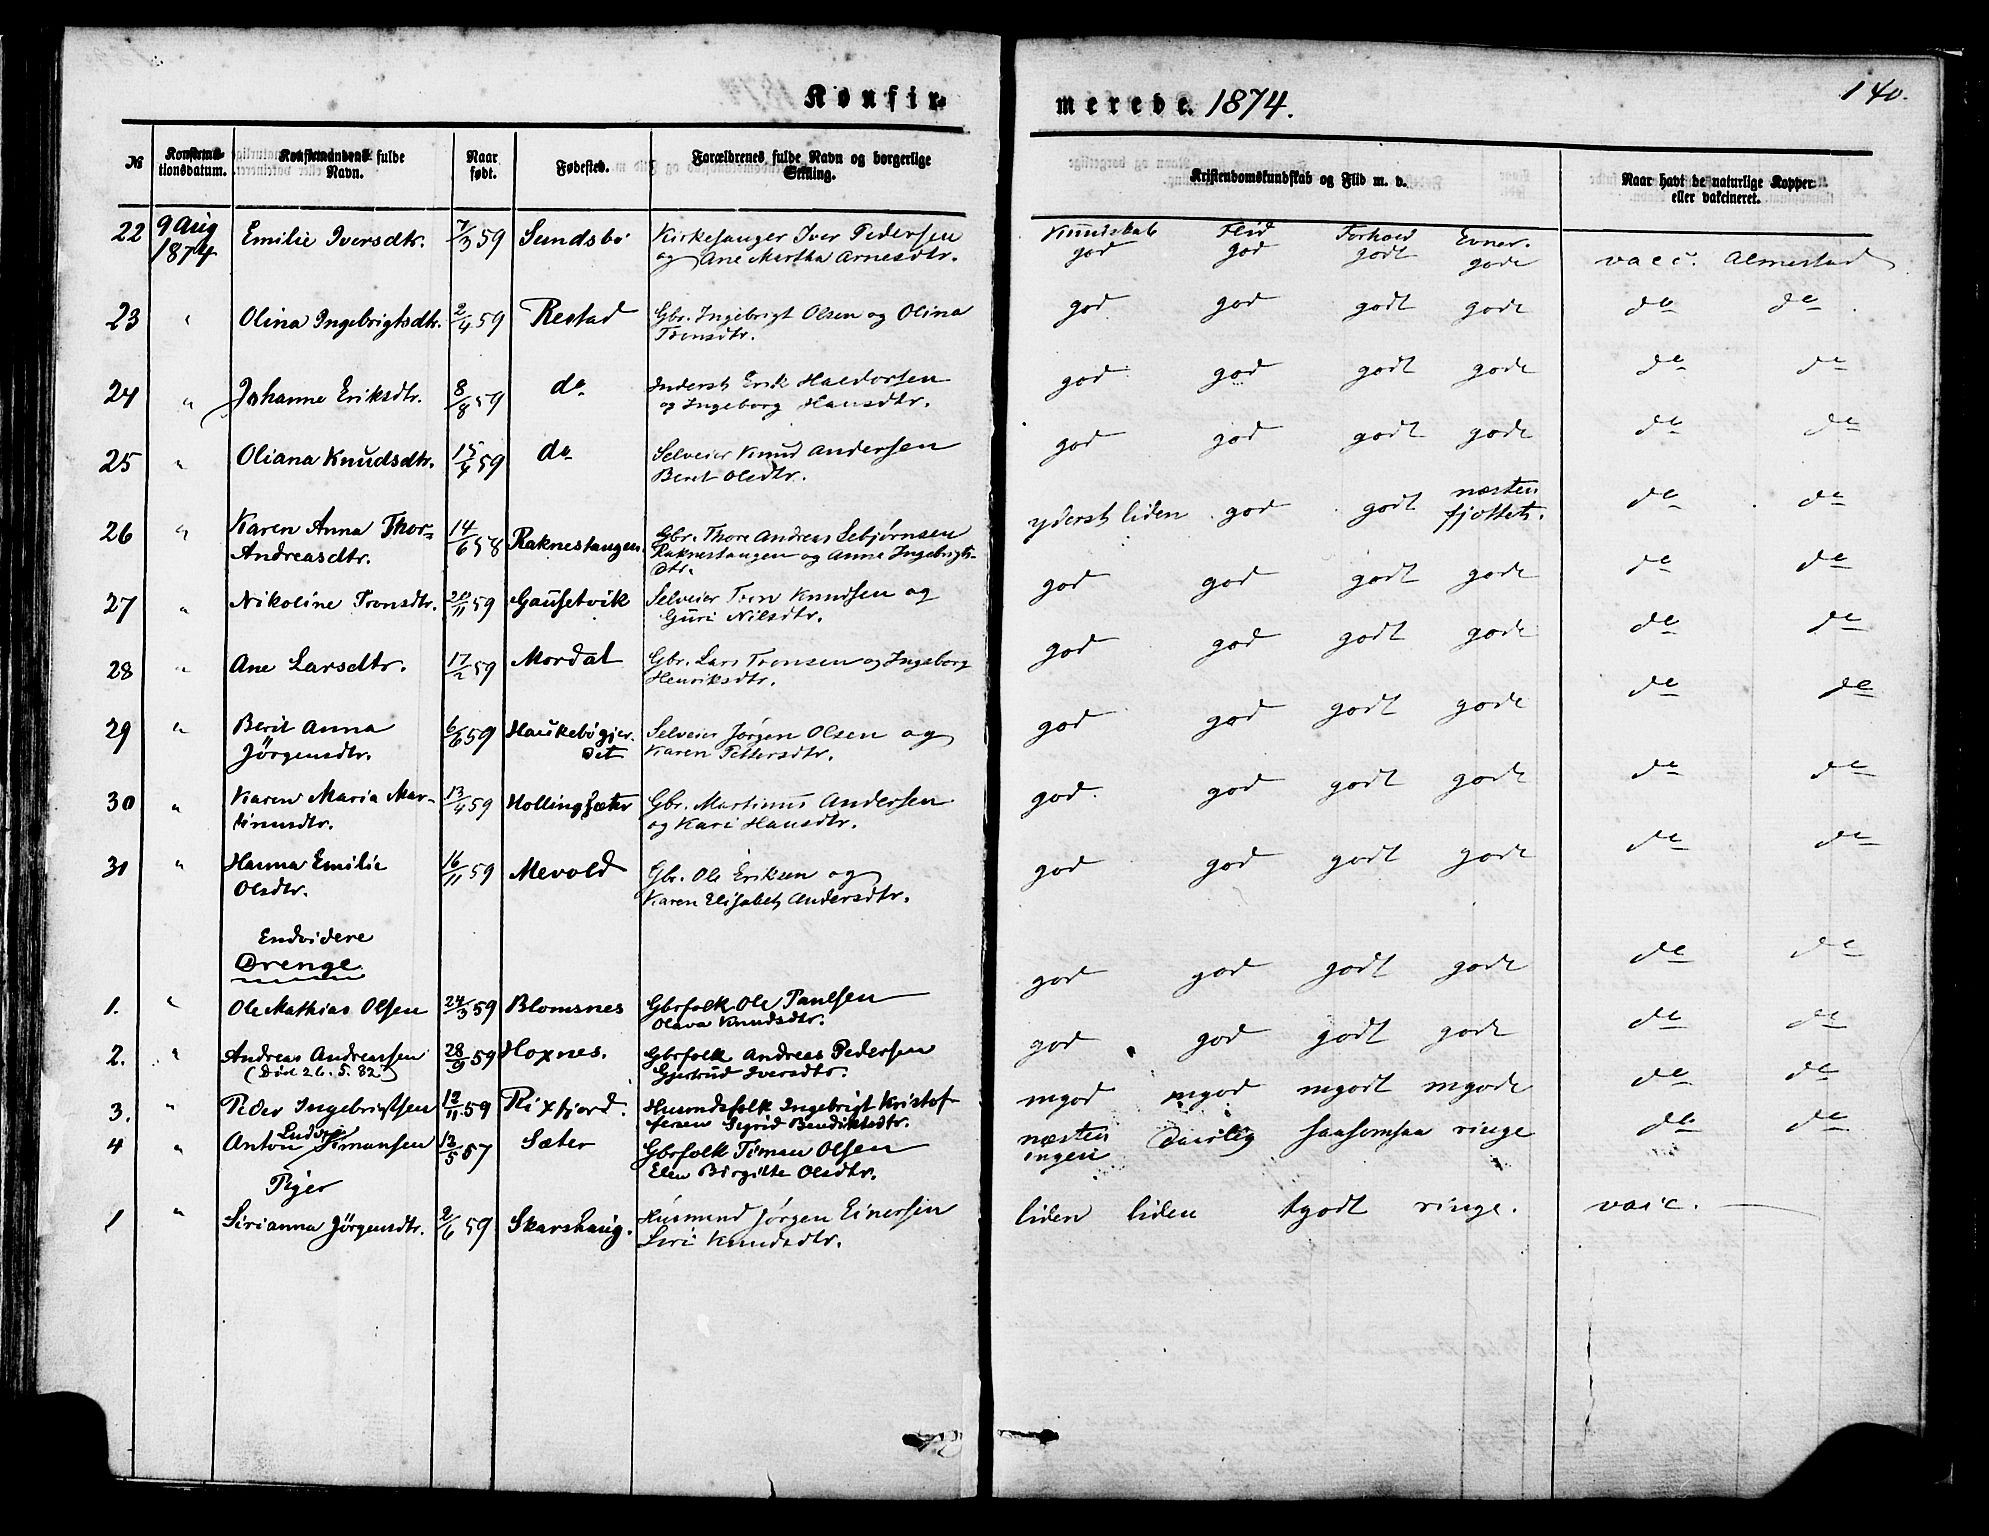 Konfir-
merede. 1874.
140.
№
Konfirma-
tionsdatum.
Konfirmandens fulde
Navn.
Naar
født.
Fødested.
Forældrenes fulde Navn og borgerlige
Stilling.
Kristendomskundskab og Flid m. v.
Naar havt de naturlige Kopper
eller vakcineret.
22 9 Aug 1874 Emilie Iversdtr. 7/3 59 Sundsbø Kirkesanger Iver Pedersen
og Ane Martha Arnesdtr.
Kundskab god Flid god Forhold godt Evner. gode vacc. Almestad
23 " Olina Ingebrigtsdtr. 2/4 59 Restad Gbr. Ingebrigt Olsen og Olina
Tronsdtr.
god god godt gode do do
24 " Johanne Eriksdtr. 8/8 59 do Inderst Erik Haldorsen
og Ingeborg Hansdtr.
god god godt gode do do
25 " Oliana Knudsdtr. 15/4 59 do Selveier Knud Andersen
Berit Olsdtr.
god god godt gode do do
26 " Karen Anna Thor-
Andreasdtr. 14/6 58 Raknestangen Gbr. Thore Andreas Sebjørnsen
Raknestangen og Anne Ingebrigts-
dtr.
yderst liden god godt næsten
fjottet. do do
27 " Nikoline Tronsdtr. 20/11 59 Gausetvik Selveier Tron Knudsen og
Guri Nilsdtr.
god god godt gode do do
28 " Ane Larsdtr. 17/2 59 Mordal Gbr. Lars Tronsen og Ingeborg
Henriksdtr.
god god godt gode do do
29 " Berit Anna
Jørgensdtr. 6/6 59 Haukebøgjer-
det Selveier Jørgen Olsen og
Karen Pettersdtr.
god god godt gode do do
30 " Karen Maria Mar-
tinusdtr. 13/4 59 Hollingsæter Gbr. Martinus Andersen
og Kari Hansdtr.
god god godt gode do do
31 " Hanna Emilie
Olsdtr. 16/11 59 Mevold Gbr. Ole Eriksen og
Karen Elisabet Andersdtr.
god god godt gode do do
Endvidere
Drenge
1. " Ole Mathias Olsen 24/3 59 Blomsnes Gbrfolk Ole Paulsen
Olava Knudsdtr.
god god godt gode do do
2. " Andreas Andreassen
(Død 26. 5. 82) 28/9 59 Hoxnes. Gbrfolk Andreas Pedersen
Gjertrud Iversdtr.
god god godt gode do do
3. " Peder Ingebrigtsen 12/11 59 Rixfjord. Husmdsfolk Ingebrigt Kristof-
fersen Sigrid Bendiktsdtr.
mgod mgod mgodt mgode do do
4 " Anton Ludvig Timansen 13/5 57 Sæter Gbrfolk Timan Olsen
Elen Birgitte Olsdtr.
næsten
ingen daarlig saasomsaa ringe do do
Piger
1 " Sirianna Jørgensdtr. 2/6 59 Skarshaug. Husmand Jørgen Einersen
Siri Knudsdtr.
liden liden tgodt ringe. vacc.